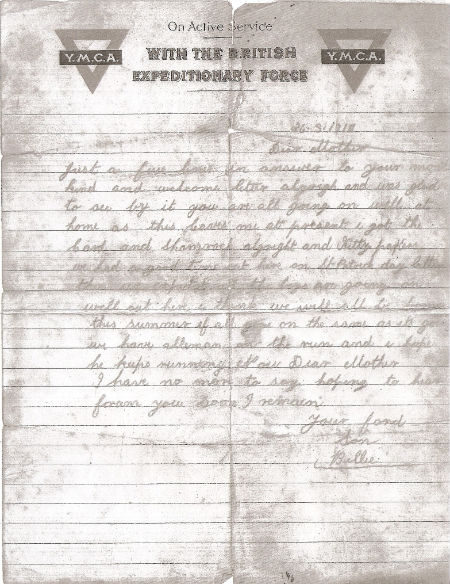 On Active Service
WITH THE BRITISH
EXPEDITIONARY FORCE
Y.M.C.A.
Y.M.C.A.
Dear Mother
Just a few lines in answer to your
kind and welcome letter alright and was glad
to see by it you are all going on well at
home as this leaves me at present i got the
card and Shamrock alright and Kitty
we had a good time out her on St Patrick day
the boys are going on
well out her i think we will all be home
this summer if all gone on the same as it
we have alleman on the run and i hope
he keeps running Now Dear Mother
I have no mor to say hoping to hear
you soon I remain
Your fond
Son
Billie